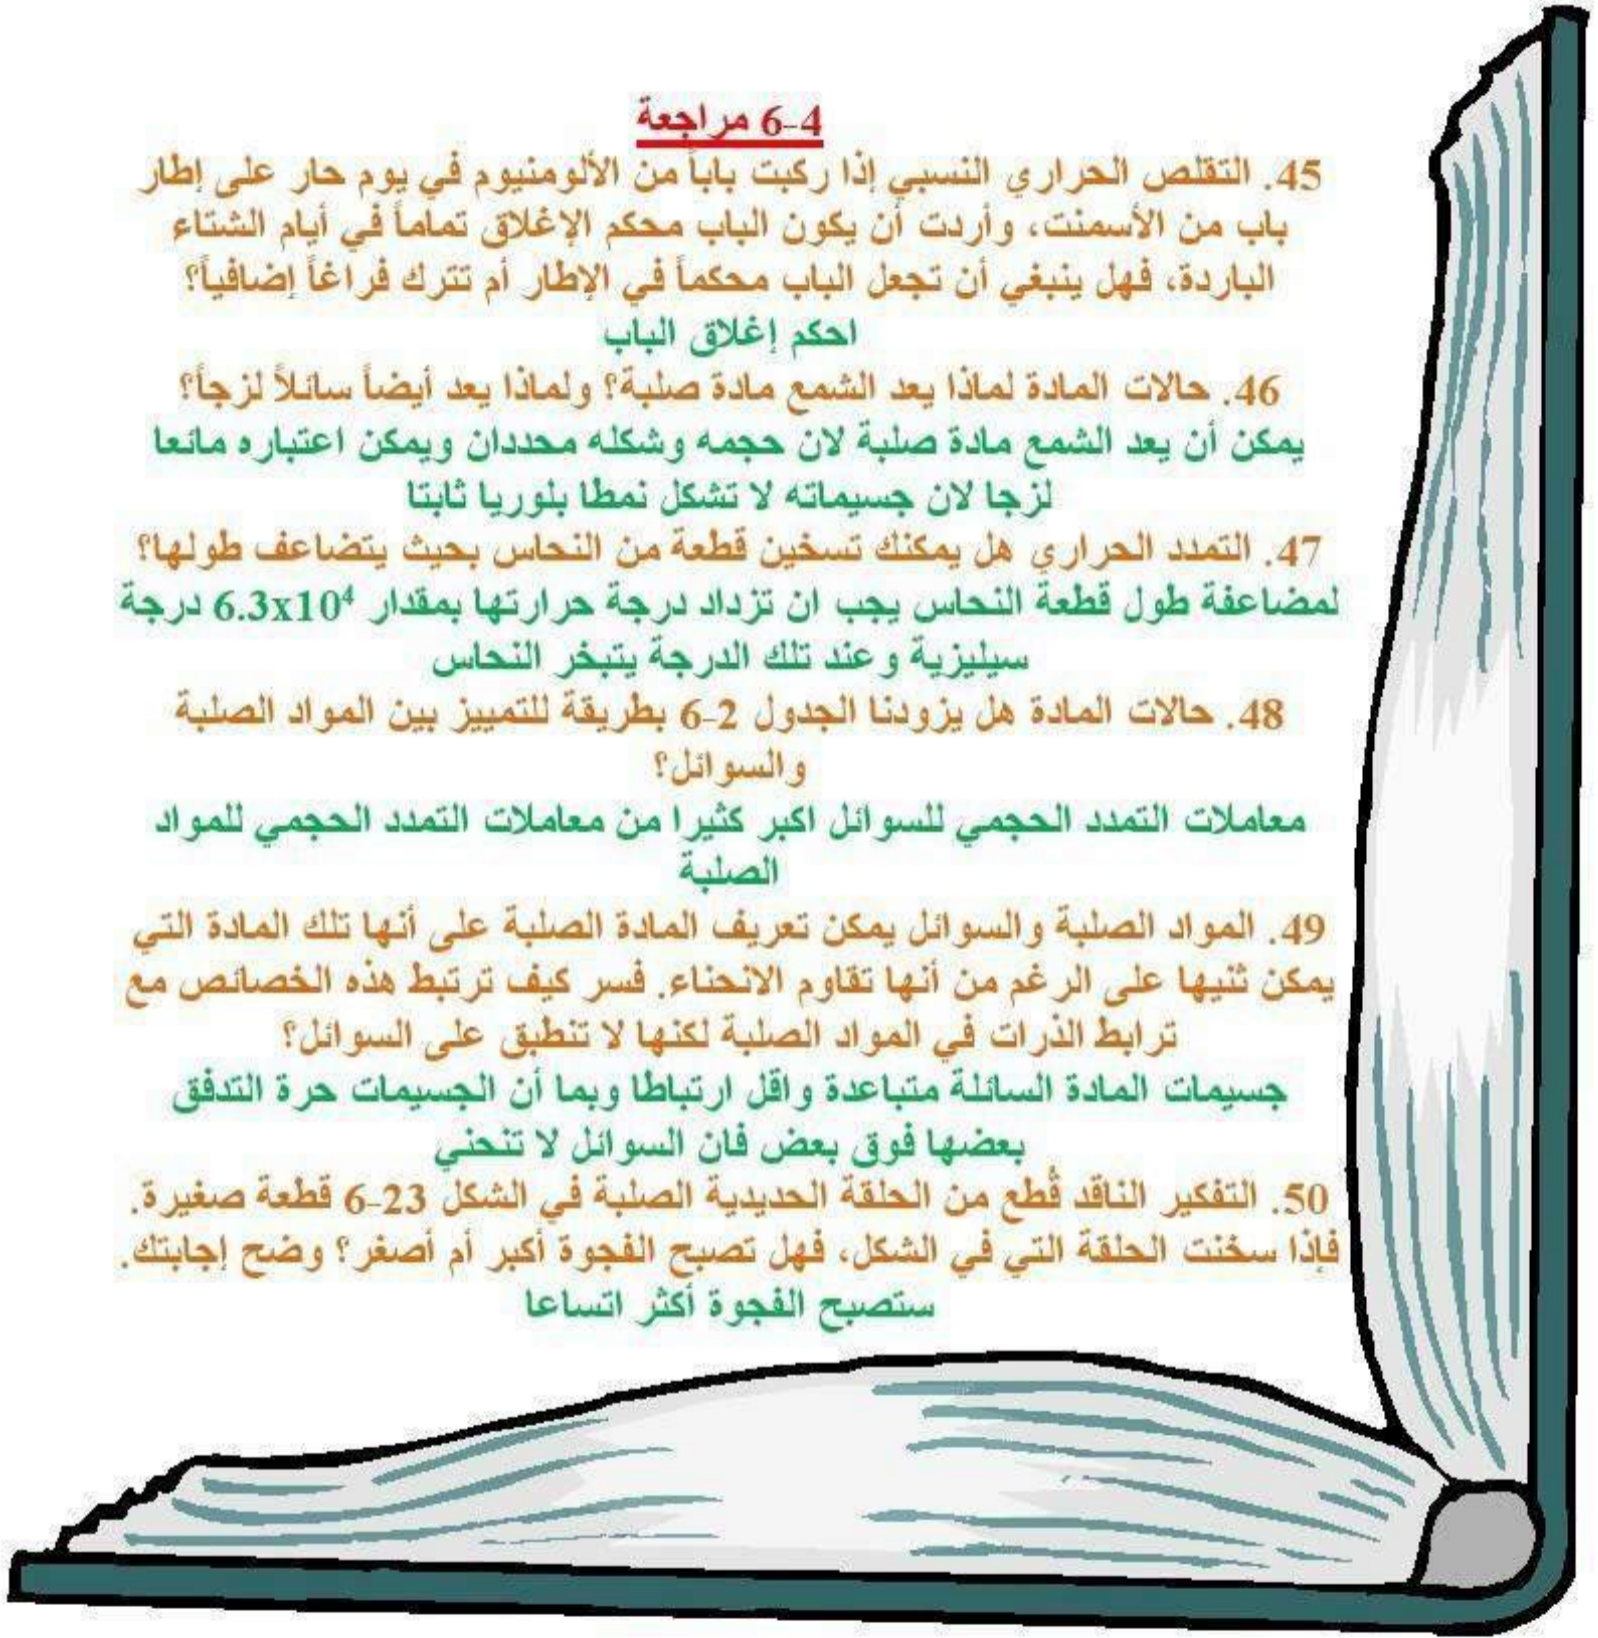 6-4 مراجعة
45. التقلص الحراري النسبي إذا ركبت باباً من الألومنيوم في يوم حار على إطار
باب من الأسمنت، وأردت أن يكون الباب محكم الإغلاق تماماً في أيام الشتاء
الباردة، فهل ينبغي أن تجعل الباب محكماً في الإطار أم تترك فراغاً إضافياً؟
احكم إغلاق الباب
46. حالات المادة لماذا يعد الشمع مادة صلبة؟ ولماذا يعد أيضاً سائلاً لزجاً؟
يمكن أن يعد الشمع مادة صلبة لان حجمه وشكله محددان ويمكن اعتباره مائعا
لزجا لان جسيماته لا تشكل نمطا بلوريا ثابتا
47. التمدد الحراري هل يمكنك تسخين قطعة من النحاس بحيث يتضاعف طولها؟
لمضاعفة طول قطعة النحاس يجب ان تزداد درجة حرارتها بمقدار 6.3x10⁴ درجة
سيليزية وعند تلك الدرجة يتبخر النحاس
48. حالات المادة هل يزودنا الجدول 2-6 بطريقة للتمييز بين المواد الصلبة
والسوائل؟
معاملات التمدد الحجمي للسوائل اكبر كثيرا من معاملات التمدد الحجمي للمواد
الصلبة
49. المواد الصلبة والسوائل يمكن تعريف المادة الصلبة على أنها تلك المادة التي
يمكن ثنيها على الرغم من أنها تقاوم الانحناء. فسر كيف ترتبط هذه الخصائص مع
ترابط الذرات في المواد الصلبة لكنها لا تنطبق على السوائل؟
جسيمات المادة السائلة متباعدة واقل ارتباطا وبما أن الجسيمات حرة التدفق
بعضها فوق بعض فان السوائل لا تنحني
50. التفكير الناقد قُطع من الحلقة الحديدية الصلبة في الشكل 23-6 قطعة صغيرة.
فإذا سخنت الحلقة التي في الشكل، فهل تصبح الفجوة أكبر أم أصغر؟ وضح إجابتك.
ستصبح الفجوة أكثر اتساعا